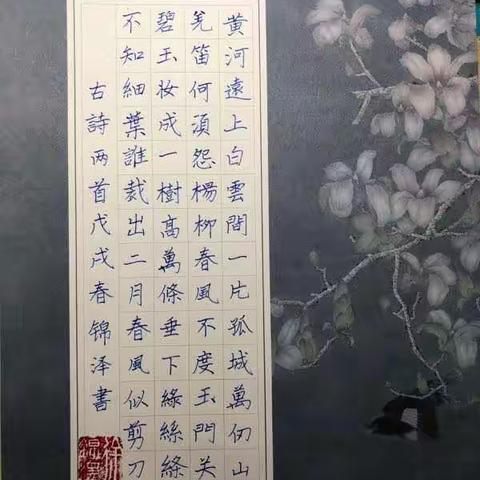 黄河遠上白雲間一片孤城萬仞山
羌笛何須怨楊柳春風不度玉門关
碧玉妝成一樹高萬條垂下綠絲絛
不知細葉誰裁出二月春風似剪刀
古詩两首戊戌春锦泽書